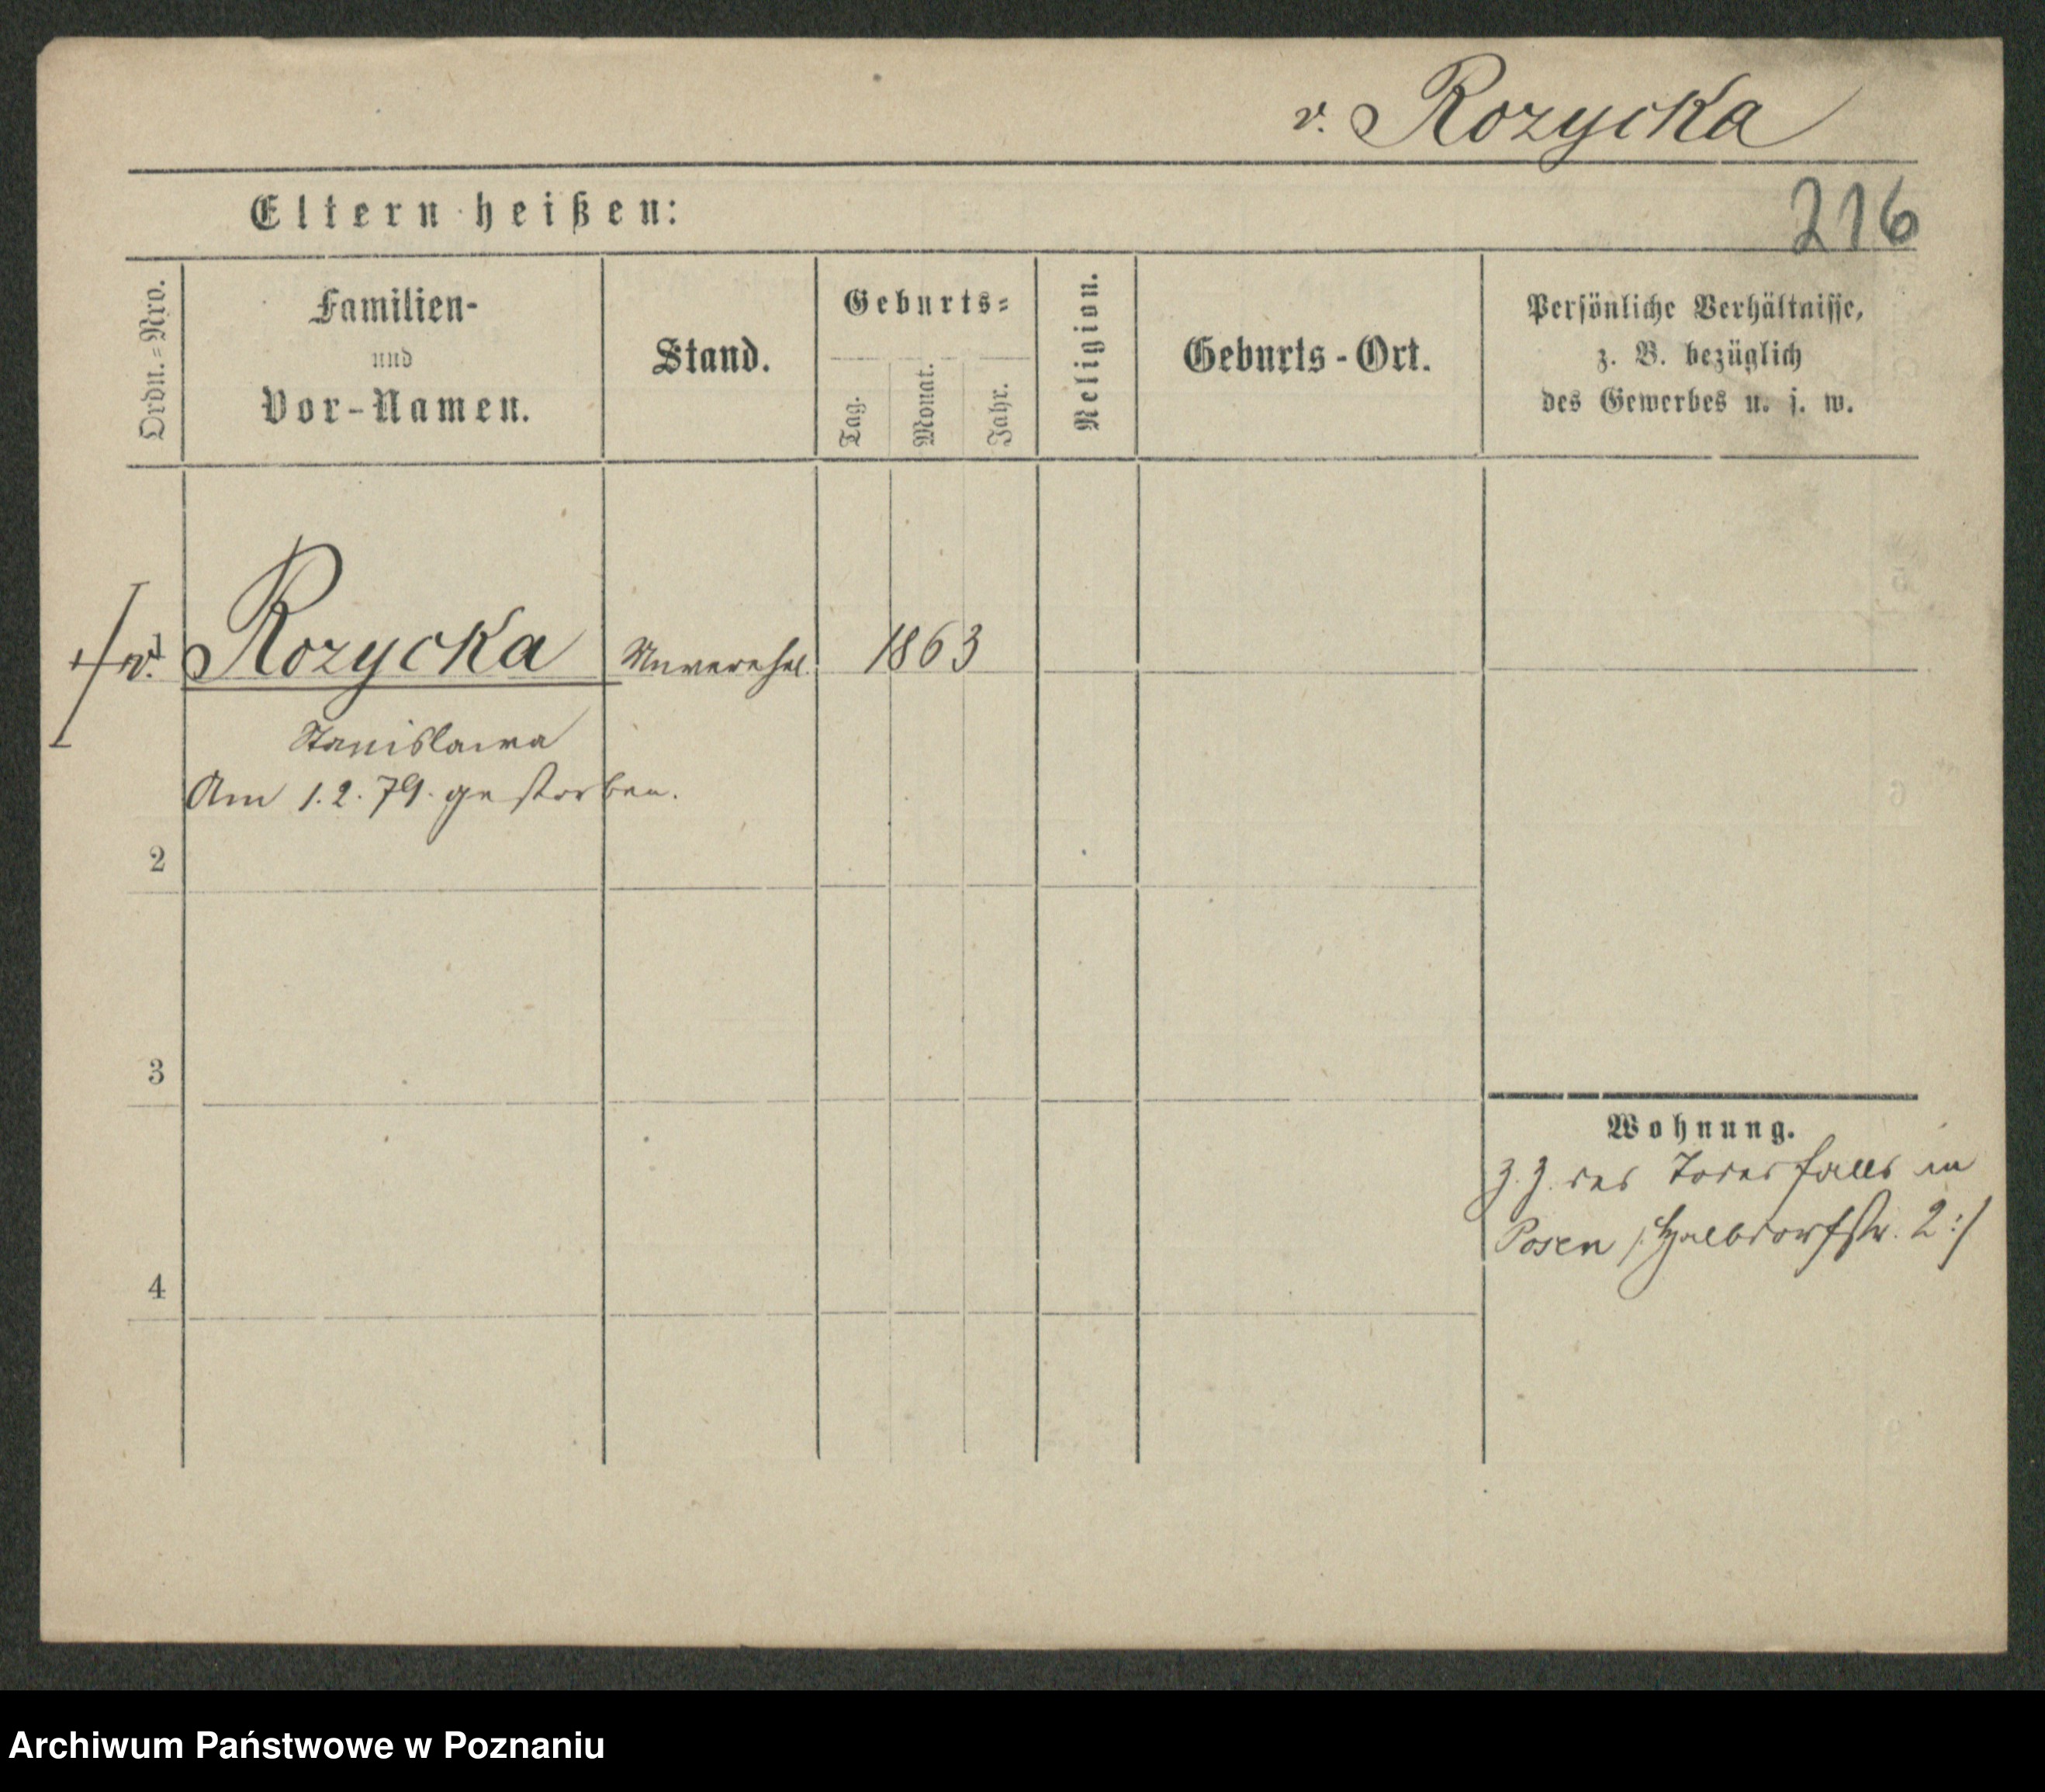 v. Rozycka
Eltern heißen:
216
Ordn.=Nro.
Familien-
und
Vor-Namen.
Stand.
Geburts=
Tag.
Monat.
Jahr.
Religion.
Geburts-Ort.
Persönliche Verhältnisse,
z. B. bezüglich
des Gewerbes u. s. w.
v. Rozycka Unverehel. 1863
Stanislawa
Am 1.2.79. gestorben.
2
3
Wohnung.
z. Z. des Todesfalls in
Posen /: Halbdorfstr. 2 :/
4
Archiwum Państwowe w Poznaniu